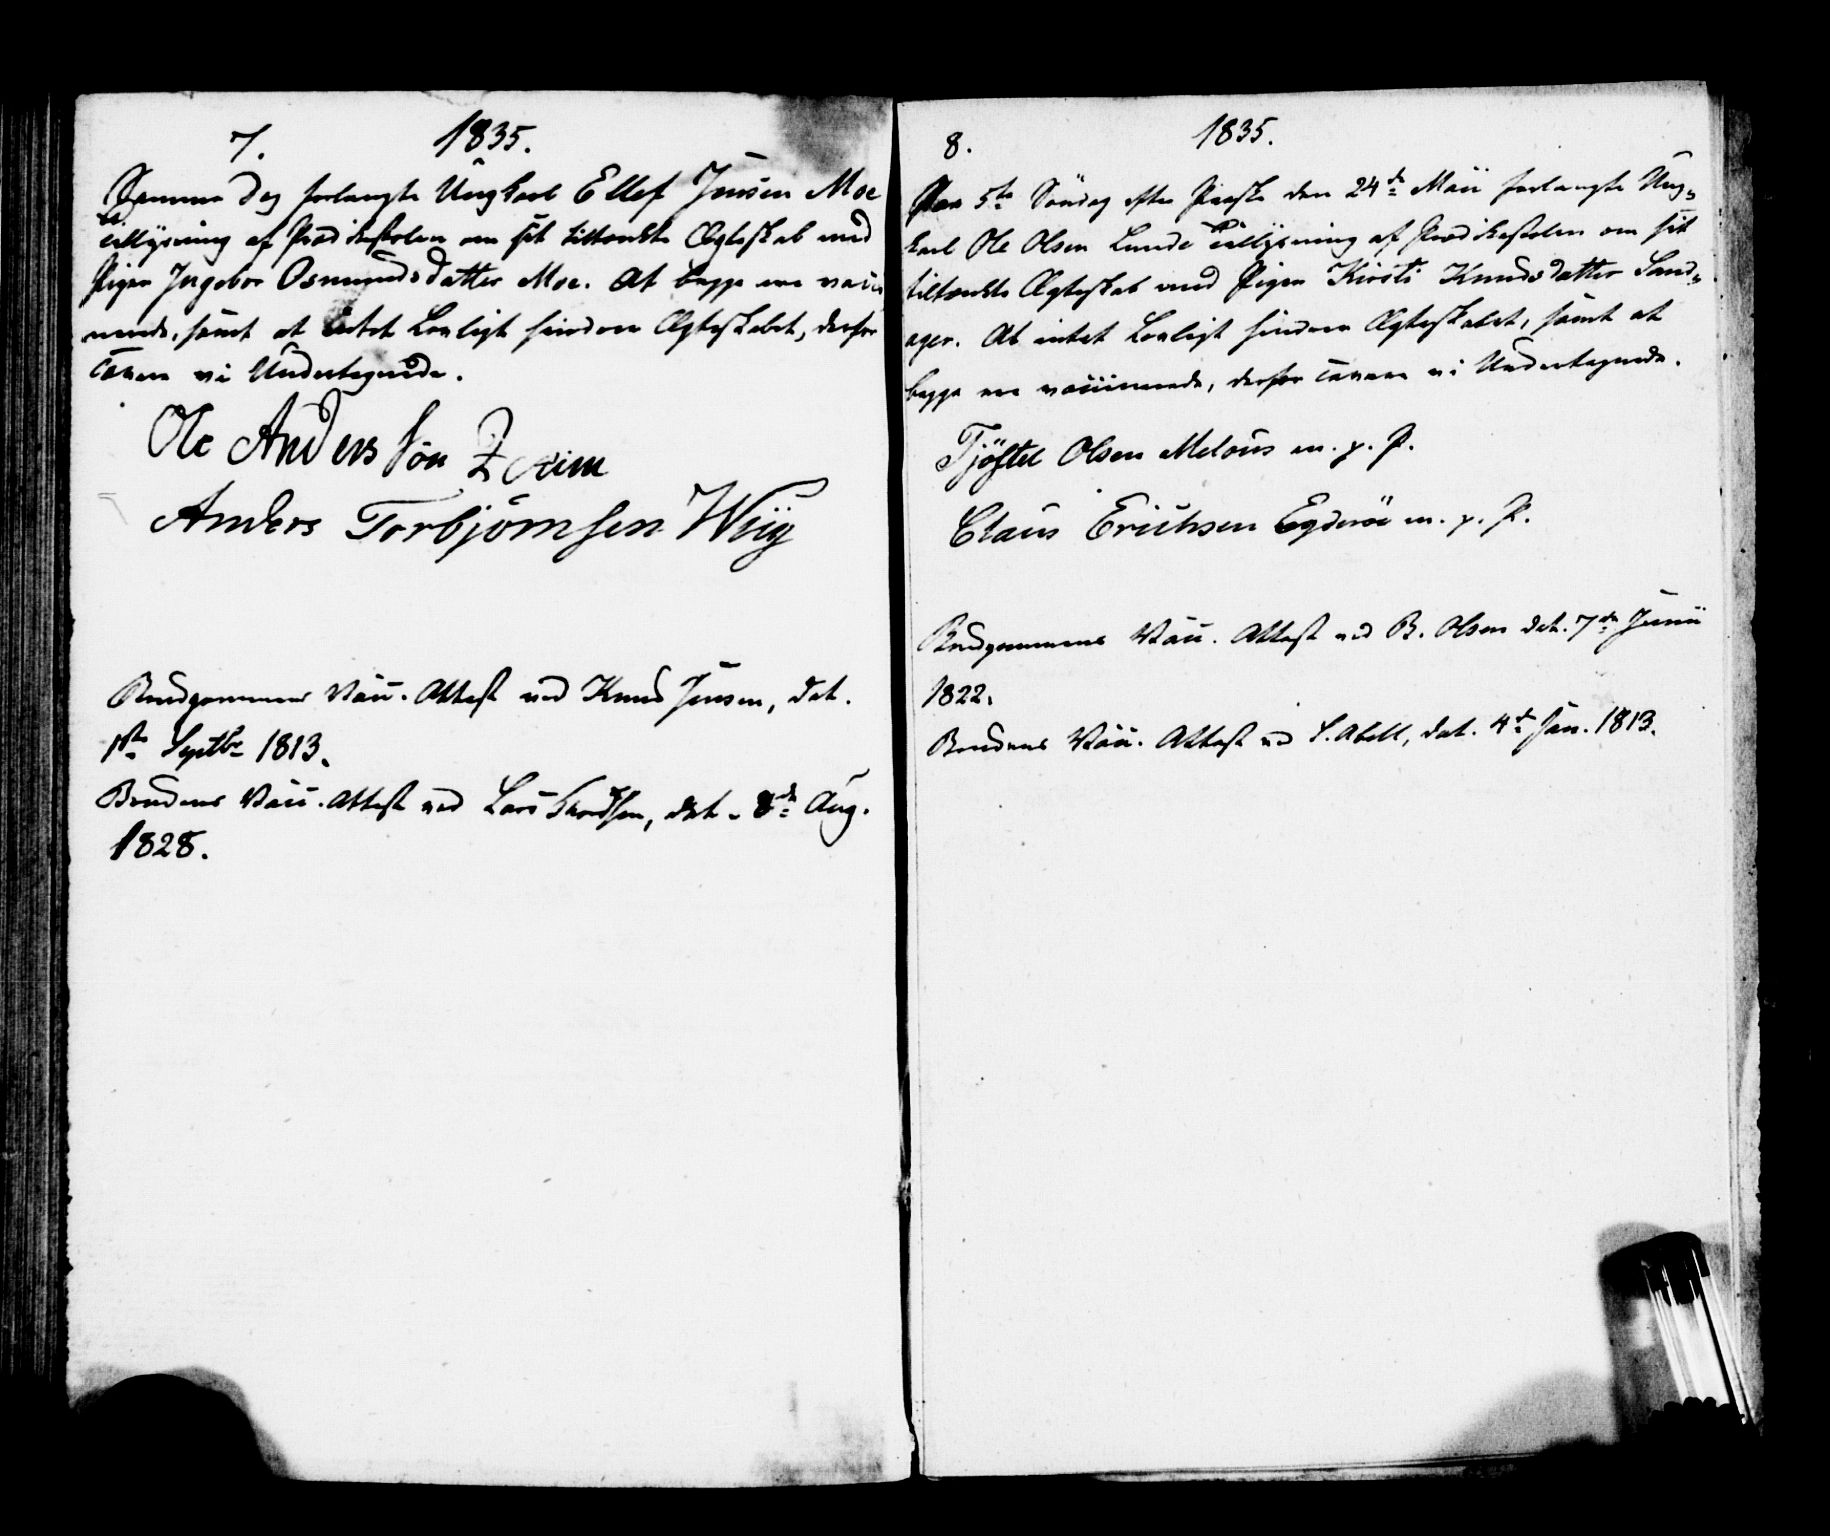 7. 1835.
Samme Dag forlangte Ungkarl Ellef Jensen Moe
Tillysning af Prædikestolen om sit tiltænkte Ægteskab med
Pigen Ingebor Osmundsdatter Moe. At begge ere vacci
nerede, samt at intet Lovligt hindrer Ægteskabet, derfor
cavere vi Undertegnede.
Ole Anders søn
Anders Torbjörnsen Wiig
Brudgommens Vacc. Attest ved Knud Jensen, dat.
1ste Septbr 1813.
Brudens Vacc. Attest ved Lars, dat. 8de Aug.
1828.
8. 1835.
Paa 5te Söndag efter Paaske den 24de Maii forlangte Ung-
karl Ole Olsen Lunde Tillysning af Prædikestolen om sit
tiltænkte Ægteskab med Pigen Kirsti Knudsdatter Sand-
ager. At intet Lovligt hindrer Ægteskabet, samt at
begge ere vaccinerede, derfor cavere vi Undertegnede.
Tjöstel Olsen Melaus m. p. P.
Claus Erichsen Egderöe m. p. P.
Brudgommens Vacc. Attest ved B. Olsen dat. 7de Junii
1822.
Brudens Vacc. Attest ved S. Abell, dat. 4de Jan. 1813.